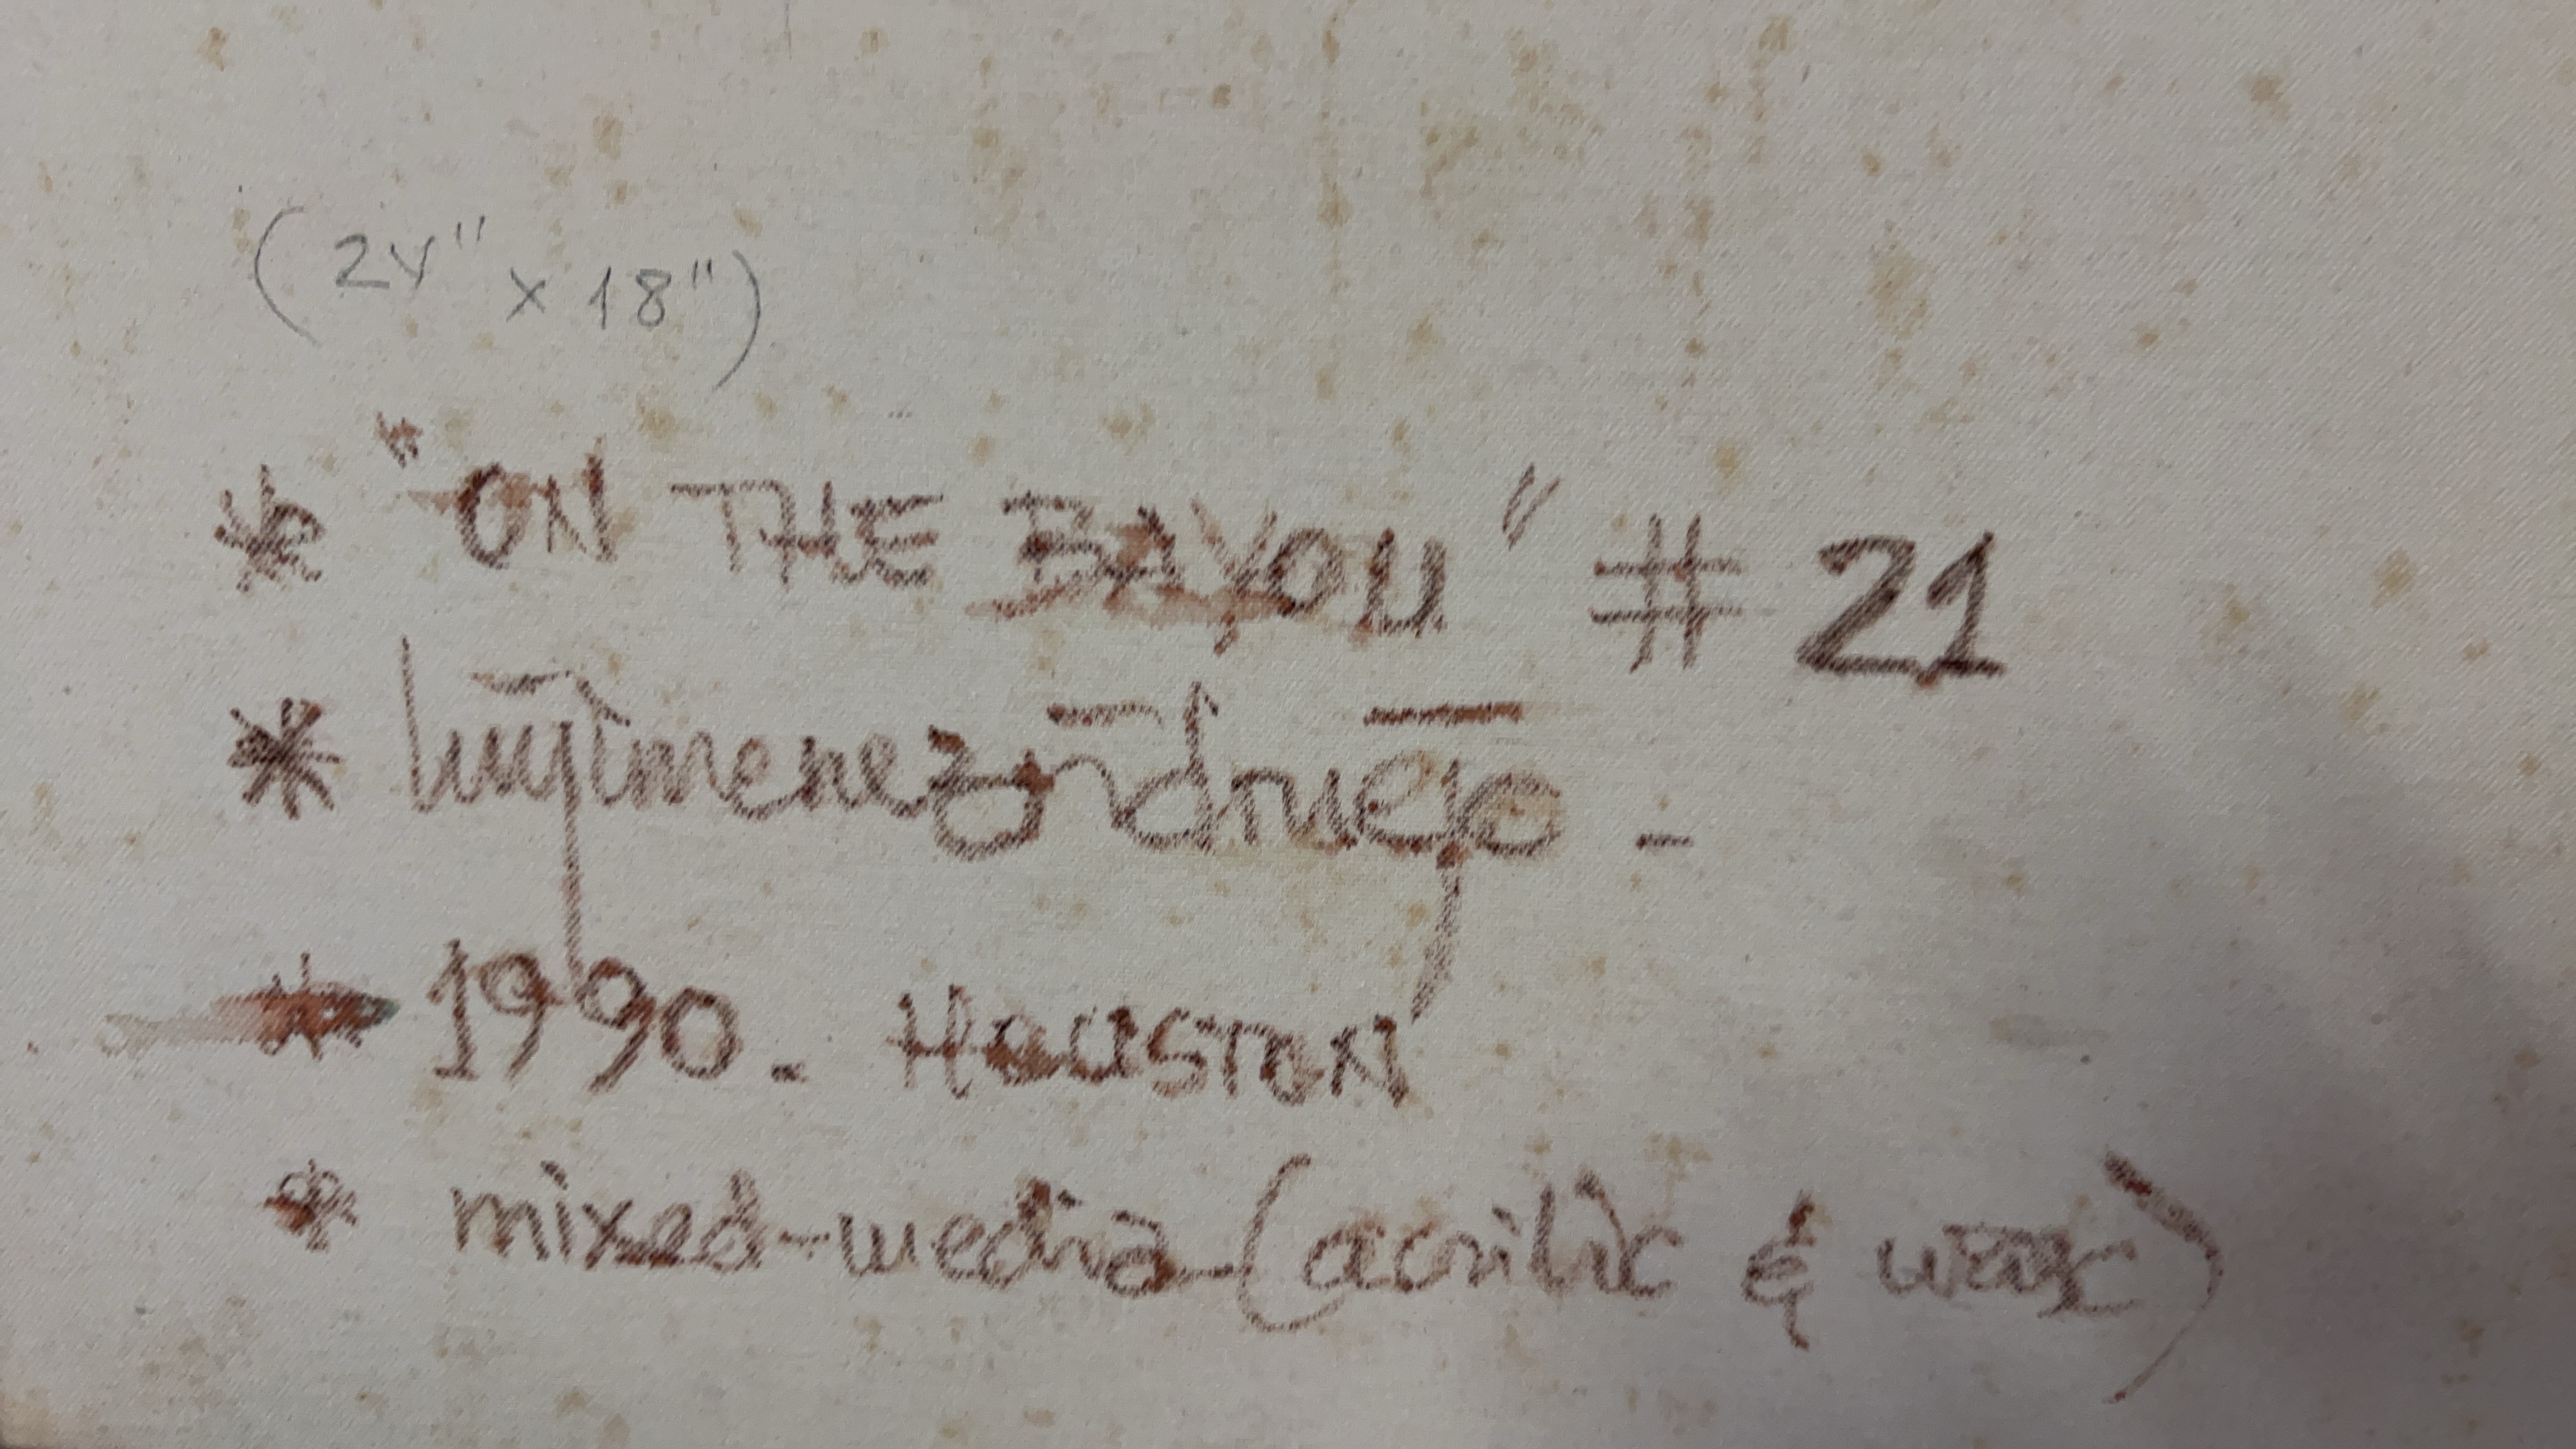 (24" x 18")
* "ON THE BAYOU" # 21
* -
* 1990. HOUSTON
* mixed-media (acrilic & wax)